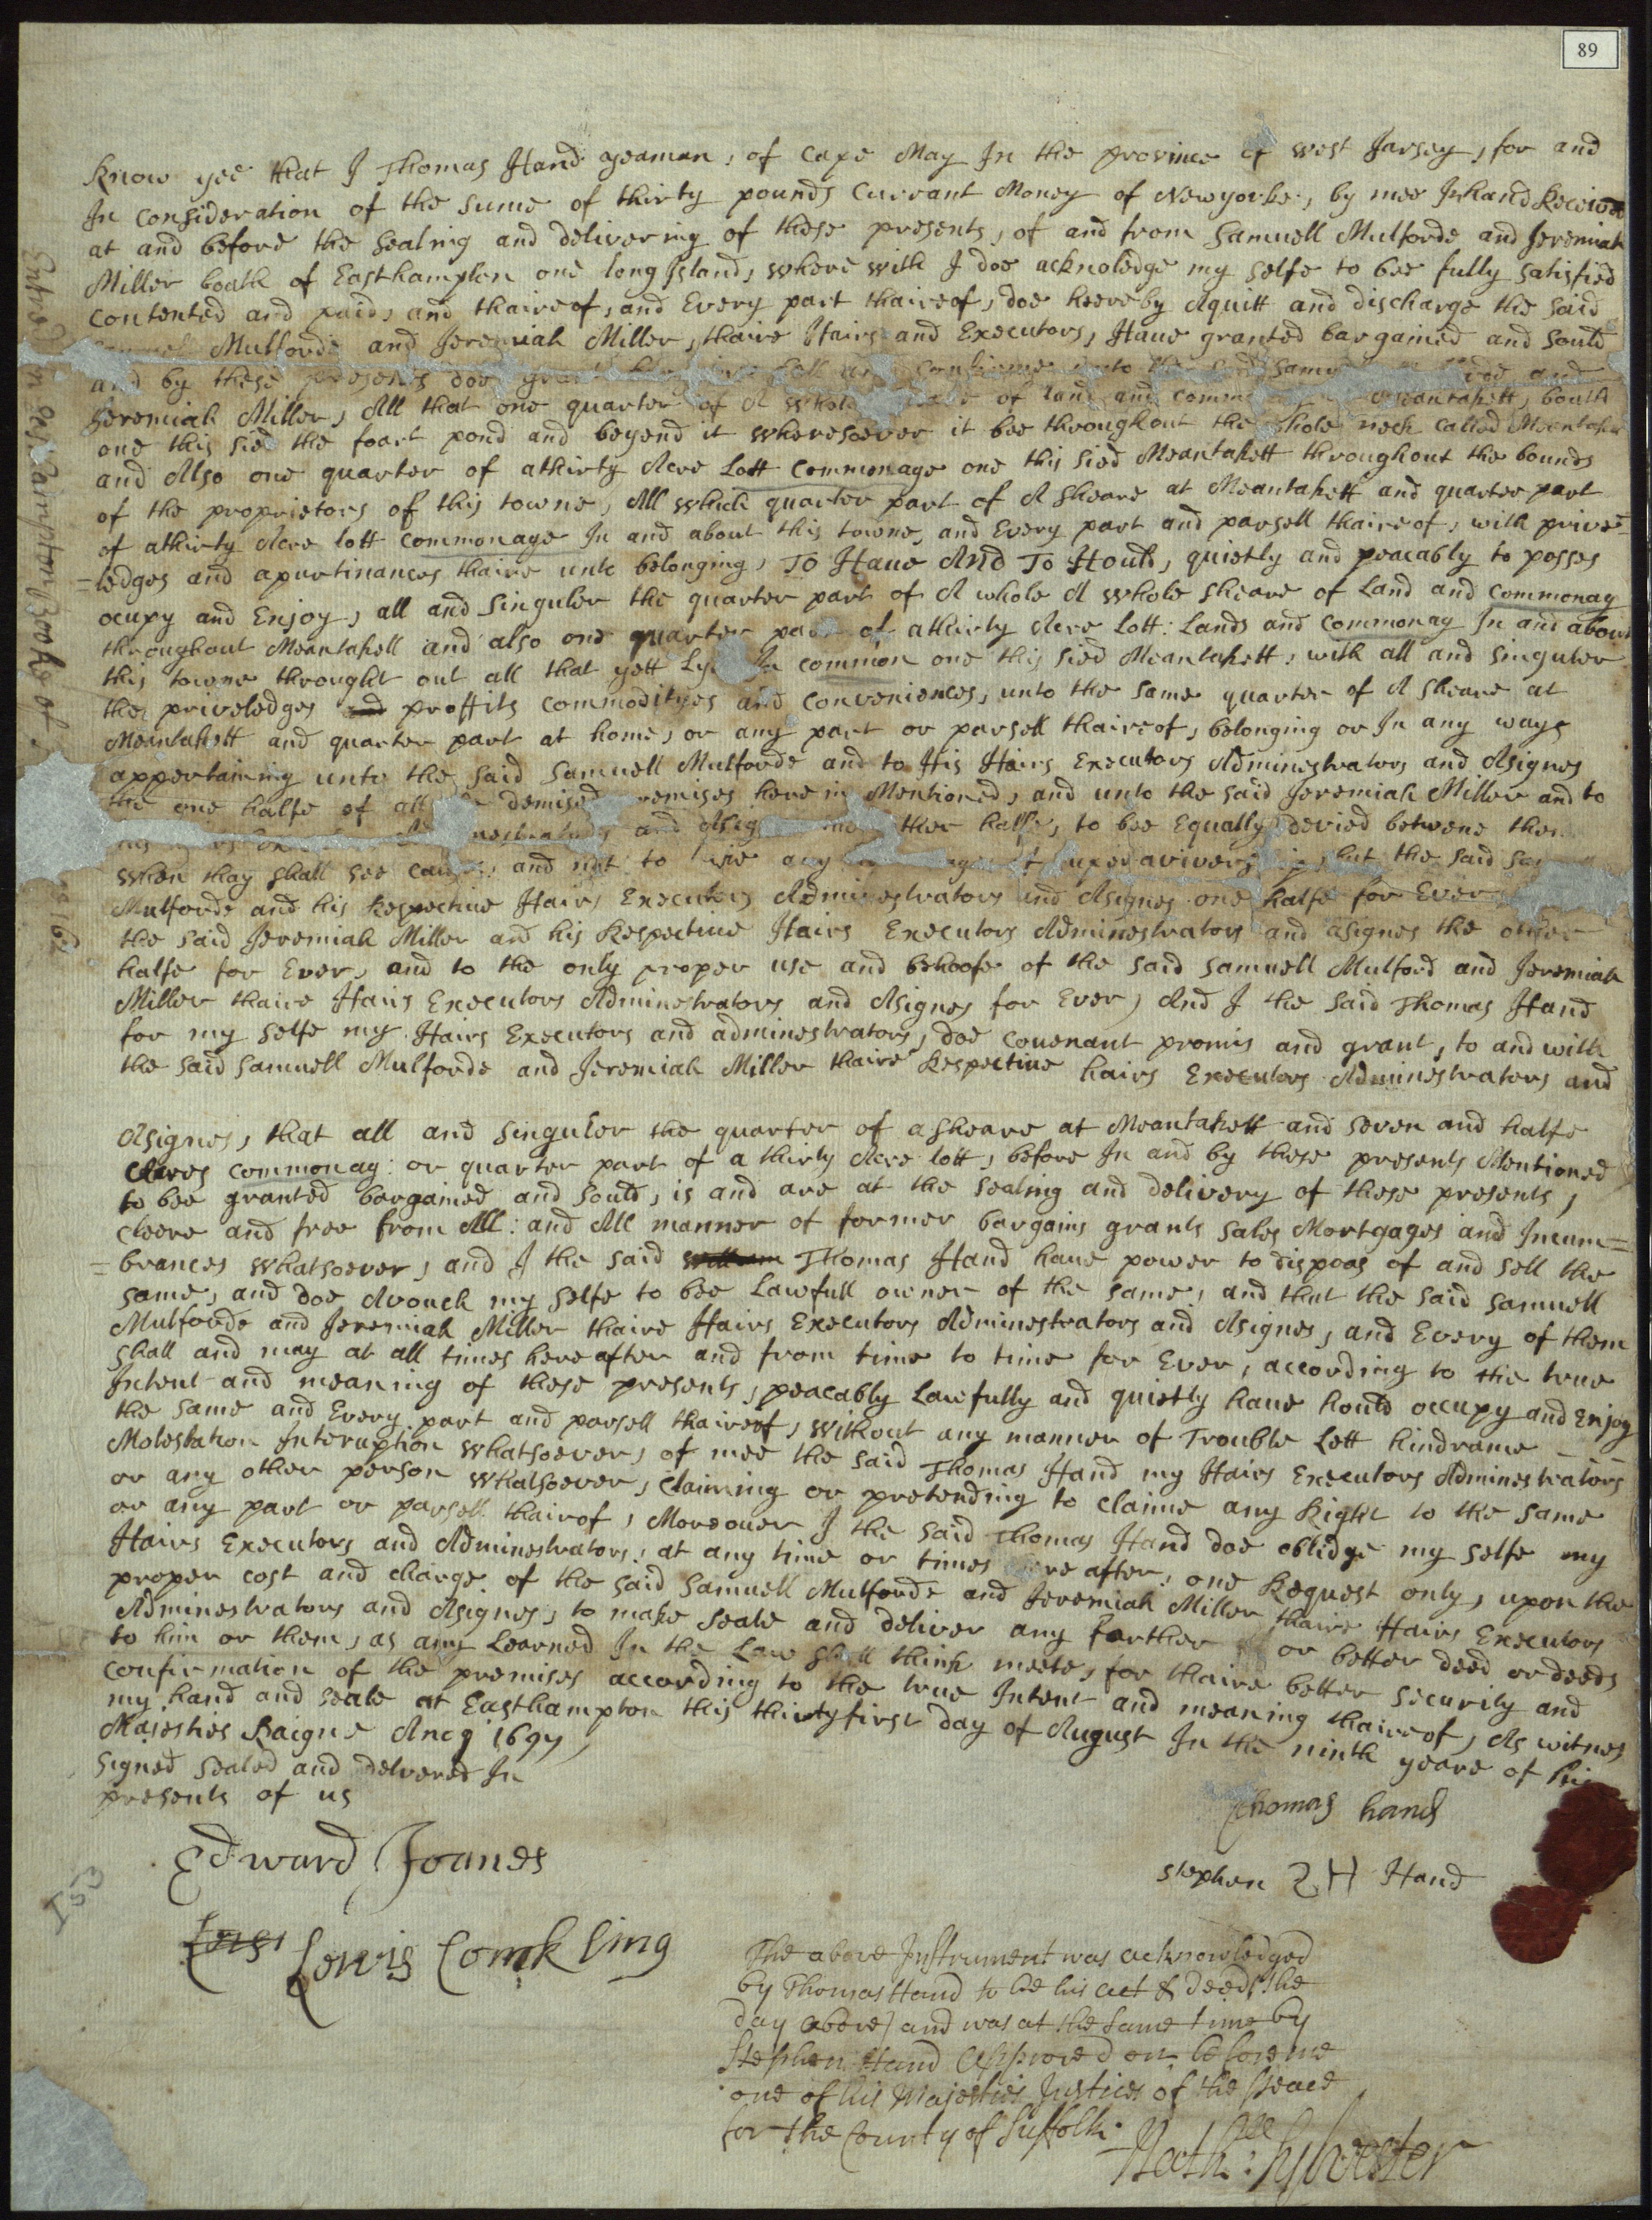 89
Know yee that I Thomas Hand yeaman, of Cape May In the province of west Jarsey, for and
In consideration of the sume of thirty pounds Currant Money of Newyorke, by mee Inhand Received
at and before the sealing and delivering of these presents, of and from Samuell Mulforde and Jeremiah
Miller boath of Easthampton one long Island, where with I doe acknoledge my selfe to bee fully satisfied
contented and paid, and thaireof, and Every part thaireof, doe heereby Aquitt and discharge the said
Mulforde and Jeremiah Miller, thaire Hairs and Executors, Haue granted bargained and sould
and by these presents doe confirme unto the said and
Jeremiah Miller, All that one quarter of A whole of land and Meantakett, bouth
one this sied the foart pond and beyend it wheresoever it bee throughout the whole neck called Meantakett
and Also one quarter of athirty Acre Lott Commonage one this sied Meantakett throughout the bounds
of the proprietors of this towne, All which quarter part of A sheare at Meantakett and quarter part
of athirty Acre lott Commonage In and about this towne, and Every part and parsell thaireof, with prive=
=ledges and apurtinances thaire unto belonging, To Haue And To Hould, quietly and peacably to posses
ocupy and Enjoy, all and singuler the quarter part of A whole A whole sheare of Land and commonag
throughout Meantakett and also one quarter part of athirty Acre Lott: Lands and commonag In and about
this towne throught out all that yett Lye In common one this sied Meantakett, with all and singuler
the priveledges and proffits commodityes and conveniences, unto the same quarter of A sheare at
Meantakett and quarter part at home, or any part or parsell thaireof, belonging or In any ways
appertaining unto the said Samuell Mulforde and to His Hairs Executors Administrators and Asignes
the one halfe of all demised premises here in Mentioned, and unto the said Jeremiah Miller and to
and other halfe, to bee Equally devied betwene them
when thay shall see cause, and not to any but the said
Mulforde and his Respectiue Hairs Executors Adminestrators and Asignes one halfe for Ever
the said Jeremiah Miller and his Respectiue Hairs Executors Adminestrators and asignes the other
halfe for Ever, and to the only proper use and behoofe of the said Samuell Mulford and Jeremiah
Miller thaire Hairs Executors Adminestrators and Asignes for Ever, And I the said Thomas Hand
for my selfe my Hairs Executors and adminestrators, doe couenant promis and grant, to and with
the said Samuell Mulforde and Jeremiah Miller thaire Respectiue hairs Executors Adminestrators and
Asignes, that all and singuler the quarter of a sheare at Meantakett and seven and halfe
Acres commonag: or quarter part of a thirty Acre lott, before In and by these presents Mentioned
to bee granted bargained and sould, is and are at the sealing and delivery of these presents,
cleere and free from All: and All manner of former bargains grants sales Mortgages and Incum=
=brances whatsoever, and I the said Thomas Hand haue power to dispoas of and sell the
same, and doe Avouch my selfe to bee Lawfull owner of the same, and that the said Samuell
Mulforde and Jeremiah Miller thaire Hairs Executors Adminestrators and Asignes, and Every of them
shall and may at all times hereafter and from time to time for Ever, according to the true
Intent and meaning of these presents, peacably Lawfully and quietly haue hould occupy and Enjoy
the same and Every part and parsell thaireof, without any manner of Trouble Lett hindrance
Molestation Interuption whatsoever, of mee the said Thomas Hand my Hairs Executors Adminestrators
or any other person whatsoever, Claiming or pretending to claime any Right to the same
or any part or parsell thairof, Moreouer I the said Thomas Hand doe oblidge my selfe my
Hairs Executors and Adminestrators, at any time or times here after, one Request only, upon the
proper cost and charge of the said Samuell Mulforde and Jeremiah Miller thaire Hairs Executors
Adminestrators and Asignes, to make seale and deliver any farther or better deed or deeds
to him or them, as any Learned In the Law shall think meete, for thaire better security and
confirmation of the premises according to the true Intent and meaning thaireof, As witnes
my hand and seale at Easthampton this thirtyfirst day of August In the ninth yeare of his
Majesties Raigne 1697,
Signed Sealed and delvered In
presents of us
Thomas hand
Edward Joanes
Stephen SH Hand
Lewis Conkling
The above Instrument was acknowledged
by Thomas Hand to be his act & deed the
day above and was at the same time by
Stephen Hand Approved on before me
one of his Majesties Justices of the Peace
for the County of Suffolk.
Nath:ll Sylvester